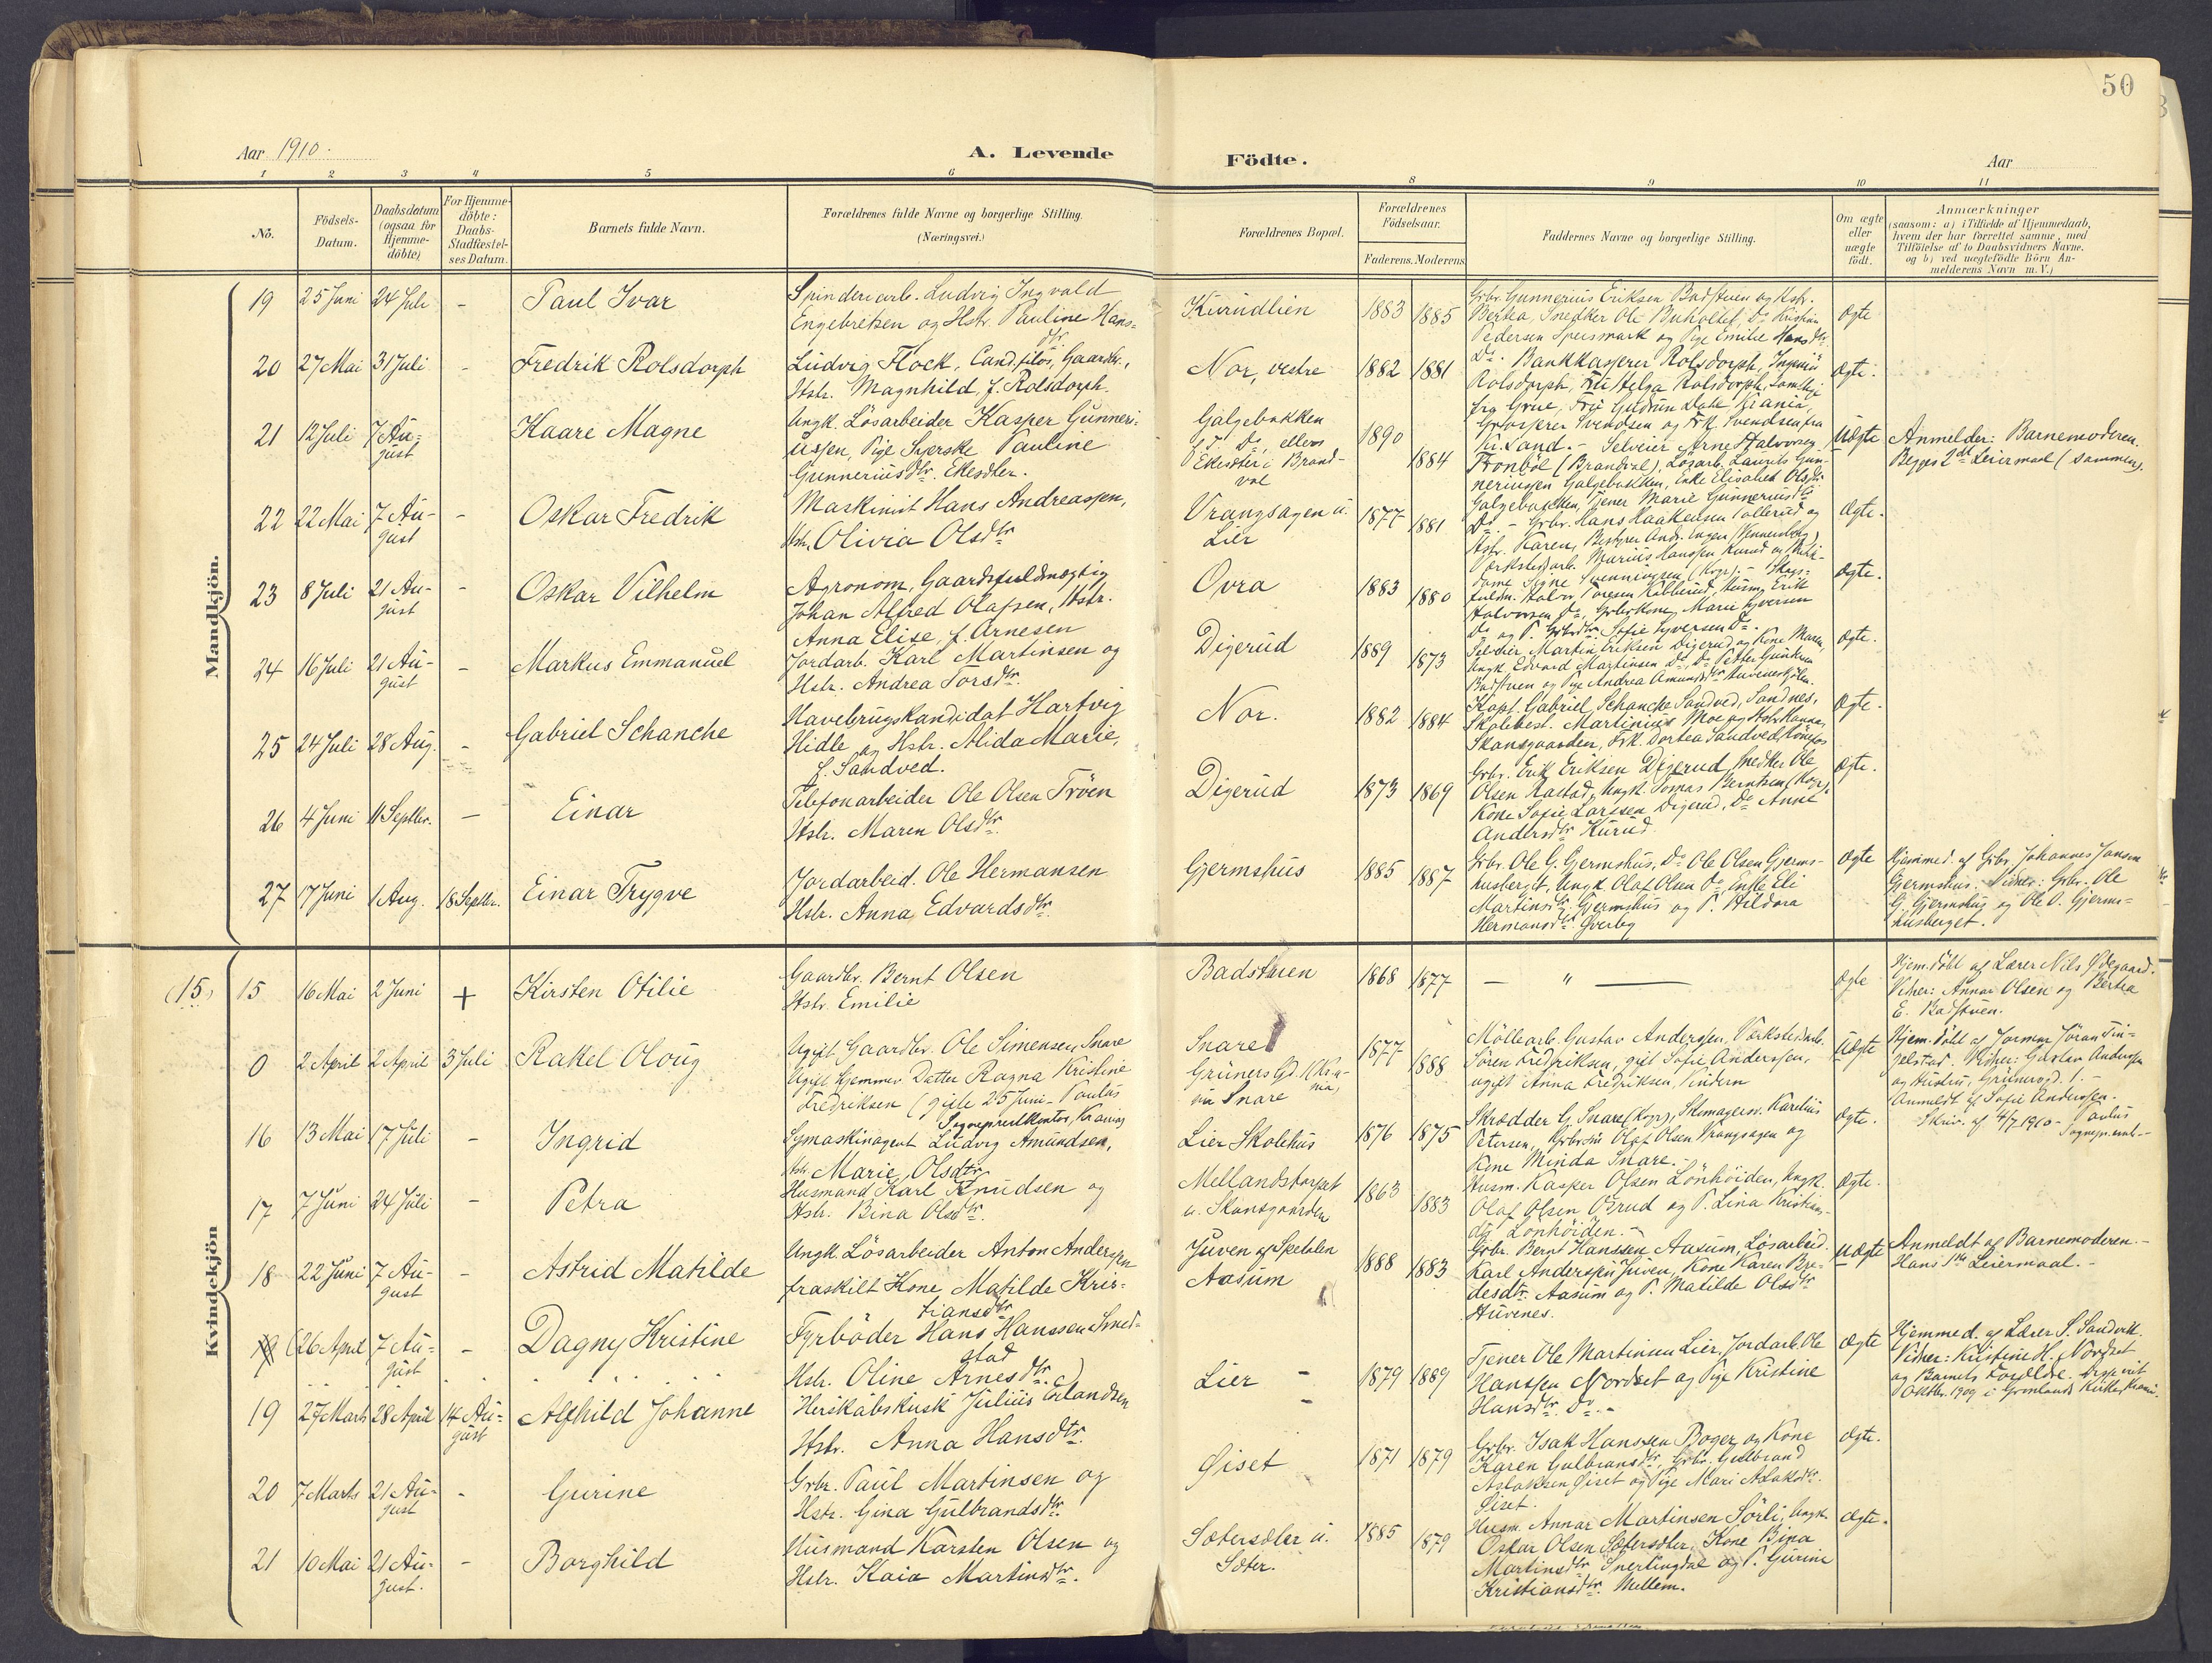 50
Aar 1910.
A. Levende
Födte.
Aar
1 2 3 4 5 6 8 9 10 11
No.
Födsels-Datum.
Daabsdatum (ogsaa for Hjemme-döbte)
For Hjemme-döbte: Daabs-Stadfæstel-ses Datum.
Barnets fulde Navn.
Forældrenes fulde Navne og borgerlige Stilling.
(Næringsvei.)
Forældrenes Bopæl.
Forældrenes Födselsaar.
Faderens. Moderens.
Faddernes Navne og borgerlige Stilling.
Om ægte eller uægte födt.
Anmærkninger
(saasom: a) i Tilfælde af Hjemmedaab,
hvem der har forrettet samme, med
Tilföielse af to Daabsvidners Navne.
og b) ved uægtefödte Börn An-
melderens Navn m. V.)
Mandkjön.
19 25 Juni 24 Juli - Paul Ivar
Spinderiarb. Ludvig Ingvald
Engebretsen og Hstr. Pauline Hans-
dtr.
Kurudlien 1883 1885
Grbr. Gunnerius Eriksen Badstuen og Hstr.
Bertea, Snedker Ole Buholtet, Do Kristian
Pedersen Speismark og Pige Emilie Hansdtr.
Do.
ægte
20 27 Mai 31 Juli - Fredrik Rolsdorph
Ludvig Flock, Cand. filos, Gaardbr.,
Hstr. Magnhild, f. Rolsdorph.
Nor, vestre 1882 1881
Bankkasserer Rolsdorph, Ingeniör
Rolsdorph, Frk Helga Rolsdorph, samtlige
fra Grue, Frü Gudrun Dahl, Krania,
Grosserer Svendsen og Frk. Svendsen fra
Kr.sand. -
ægte.
21 12 Juli 7 Au-
gust
Kaare Magne
Ungk. Lösarbeider Kasper Gunneri-
ussen, Pige Syerske Pauline
Gunneriusdtr. Ekesdter.
Galgebakken
p.t. Do, ellers
Ekesdter i Brand-
val
1890 1884
Selveier Arne Halvorsen
Fronböl (Brandval), Lösarb. Lauritz Gun-
neriussen Galgebakken, Enke Elisabet Olsdtr
Galgebakken, Tjener Marie Gunneriusdtr
Do. -
uægte
Anmelder: Barnemoderen.
Begges 2det Leiermaal (sammen).
22 22 Mai 7 Au-
gust
- Oskar Fredrik
Maskinist Hans Andreassen,
Hstr. Olivia Olsdtr
Vrangsagen u.
Lier
1877 1881
Grbr. Hans Haakensen Tollerud og
Hstr. Karen, Bestyrer Andr. Enger (Vennersberg)
Værkstedarb. Marius Hanssen Kurud og Butik-
dame Signe Svenningsen (Kgv). -
ægte.
23 8 Juli 21 Au-
gust
- Oskar Vilhelm
Agronom, Gaardsfuldmægtig
Johan Alfred Olafsen, Hstr.
Anna Elise, f. Arnesen
Ovra 1883 1880
Skogs-
fuldm. Halvor Toresen Kabberud, Husm. Erik
Halvorsen Do, Grbrkone Marie Syversen
Do og P. Grbrdtr. Sofie Syversen Do.
ægte.
24 16 Juli 21 Au-
gust
- Markus Emmanuel
Jordarb. Karl Martinsen og
Hstr. Andrea Torsdtr.
Digerud 1889 1873
Selveier Martin Eriksen Digerud og Kone Maren,
Ungk. Edvard Martinsen Do, Do Petter Gundersen
Badstuen og Pige Andrea Amundsdtr
ægte.
25 24 Juli 28 Aug. - Gabriel Schanche
Havebrugskandidat Hartvig
Hidle og Hstr. Alida Marie,
f. Sandved.
Nor. 1882 1884
Kapt. Gabriel Schanche Sandved, Sandnes,
Skolebest. Martinius Moe og Hstr. Hanna,
Skansgaarden, Frk. Dortea Sandved, Hönefos
ægte.
26 4 Juni 11 Septbr. - Einar
Telefonarbeider Ole Olsen Tröen
Hstr. Maren Olsdtr.
Digerud 1873 1869
Grbr. Erik Eriksen Digerud, Snedker Ole
Olsen Rastad, Ungk. Tomas Berntsen (Kgv),
Kone Sofie Larssen Digerud, Do Anne
Andersdtr Kurud.
ægte.
27 17 Juni 1 Aug. 18 Septbr. Einar Trygve
Jordarbeid. Ole Hermansen
Hstr. Anna Edvardsdtr.
Gjermshus 1885 1887
Grbr. Ole G. Gjermshus, Do Ole Olsen Gjerms-
husberget, Ungk. Olaf Olsen Do, Enke Eli
Martinsdtr. Gjermshus og P. Hildora
Hermansdtr. Överby
ægte
Hjemmed. af Grbr. Johannes Jansen
Gjermshus. Vidner: Grbr. Ole
G. Gjermshus og Ole O. Gjerms-
husberget.
Kvindekjön
(15) 15 16 Mai 2 Juni + Kirsten Otilie
Gaardbr. Bernt Olsen
Hstr. Emilie
Badstuen 1868 1877 — " —
ægte
Hjem.döbt af Lærer Nils Ödegaard.
Vidner: Annar Olsen og Bertea
E. Badstuen.
0 2 April 2 April 3 Juli Rakel Oloug
Ugift Gaardbr. Ole Simensen Snare
Ugift hjemmev. Datter Ragna Kristine
Fredriksen (gifte 25 Juni - Paulus
Sogneprestkontor, Krania)
Snare
Grüners Gd. 1 (Kra-
nia)
nu Snare
1877 1888
Möllearb. Gustav Anderssen, Verkstedarb.
Sören Fredriksen, gift Sofie Anderssen,
ugift Anna Fredriksen, Vindern
uægte
Hjem.döbt af Jormor Jöran Tin-
gelstad. Vidner: Gustav Anderssen
og Hustru, Grünersgd. 1. -
Anmeldt af Sofie Anderssen. -
Skriv. af 4/7 1910 - Paulus
Sognepr.emb. -
16 13 Mai 17 Juli - Ingrid
Symaskinagent Ludvig Amundsen,
Hstr. Marie Olsdtr
Lier Skolehus 1876 1875
Skrædder G. Snare (Kgv), Skomagersv. Karelius
Petersen, Grbrsön Olaf Olsen Vrangsagen og
Kone Minda Snare. -
ægte.
17 7 Juni 24 Juli - Petra
Husmand Karl Knudsen og
Hstr. Bina Olsdtr.
Mellandstorpet
u. Skansgaarden
1863 1883
Husm. Kasper Olsen Lönhöiden, Ungk.
Olaf Olsen Osrud og P. Lina Kristians-
dtr Lönhöiden. -
ægte.
18 22 Juni 7 Au-
gust
- Astrid Matilde
Ungk. Lösarbeider Anton Anderssen
fraskilt Kone Matilde Kris-
tiansdtr
Juven og Spetalen
Aasum
1888 1883
Grbr. Bernt Hanssen Aasum, Lösarbeid.
Karl Anderssen Juven, Kone Karen Bre-
desdtr. Aasum og P. Matilde Olsdtr
Huvenes.
uægte
Anmeldt af Barnemoderen. -
Hans 1ste Leiermaal. -
19 (26 April 7 Au-
gust
- Dagny Kristine
Fyrböder Hans Hanssen Smed-
stad
Hstr. Oline Arnesdtr.)
Lier - 1879 1889
Tjener Ole Martinsen Lier, Jordarb. Ole
Hanssen Nordset og Pige Kristine
Hansdtr. Do. -
ægte
Hjemmed. af Lærer S. Sandvik.
Vidner: Kristine H. Nordset
og Barnets Forældre. Disse viet
Oktbr. 1909 i Grönlands Kirke, Krania.
19 27 Marts 28 April 14 Au-
gust
Alfhild Johanne
Herskabskusk Julius Erlandsen
Hstr. Anna Hansdtr.
-
20 7 Marts 21 Au-
gust
- Gurine
Grbr. Paul Martinsen og
Hstr. Gina Gulbrandsdtr.
Öiset 1871 1879
Grbr. Isak Hanssen Boger og Kone
Karen Gulbransdtr, Grbr. Gulbrand
Aslaksen Öiset og Pige Mari Aslaksdtr.
Öiset.
ægte.
21 10 Mai 21 Au-
gust.
- Borghild
Husmand Karsten Olsen og
Hstr. Kaia Martinsdtr.
Sætersdter u.
Sæter.
1885 1879
Husm. Annar Martinsen Sörli, Ungk.
Oskar Olsen Sætersdter, Kone Bina
Martinsdtr. Snertingdal og P. Gurine
Kristiansdtr. Mellem.
ægte.